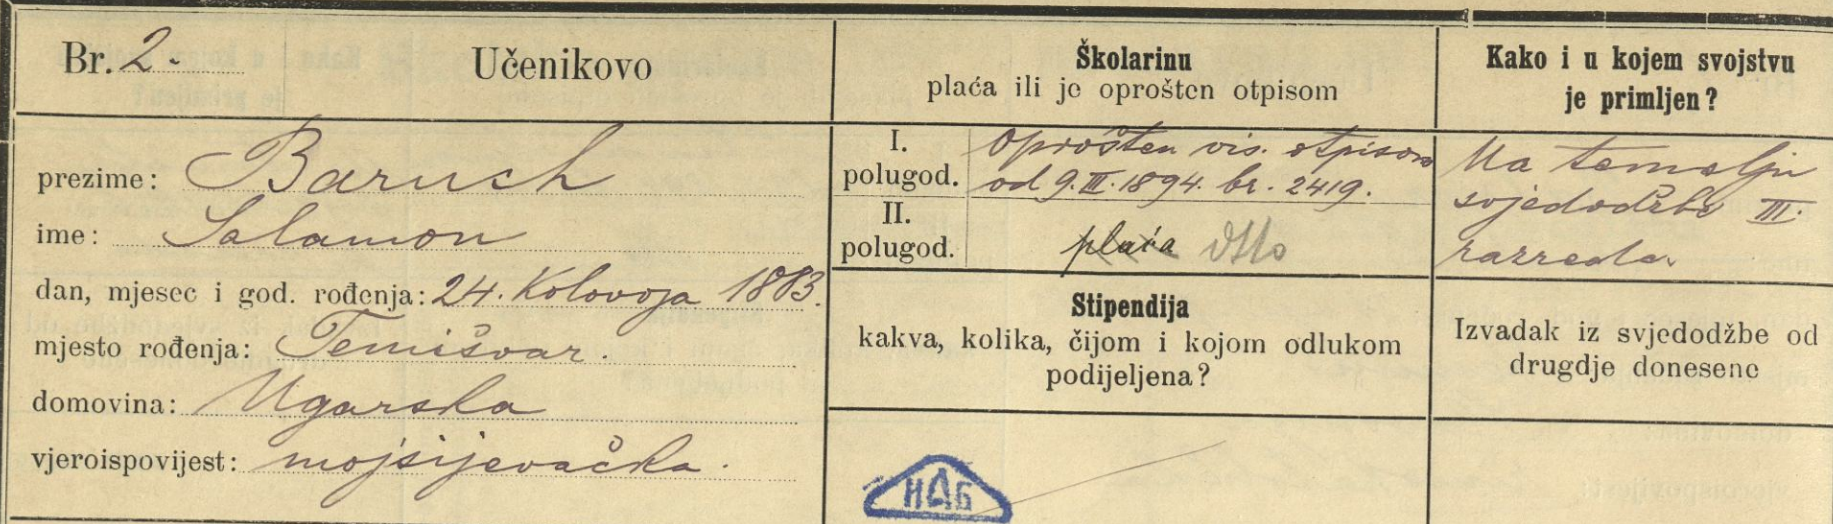 Br. 2.
Učenikovo
prezime: Baruch
ime: Salamon
dan, mjesec i god. rođenja: 24. Kolovoza 1883.
mjesto rođenja: Temišvar.
domovina: Ugarska
vjeroispovijest: mojsijevačka.
Školarinu
plaća ili je oprošten otpisom
I.
polugod.
Oprošten vis. otpisom
od 9. III. 1894. br. 2419.
II.
polugod.
plaća dtto
Stipendija
kakva, kolika, čijom i kojom odlukom
podijeljena?
НАБ
Kako i u kojem svojstvu
je primljen?
Na temelju
svjedodžbe III.
razreda.
Izvadak iz svjedodžbe od
drugdje donesene